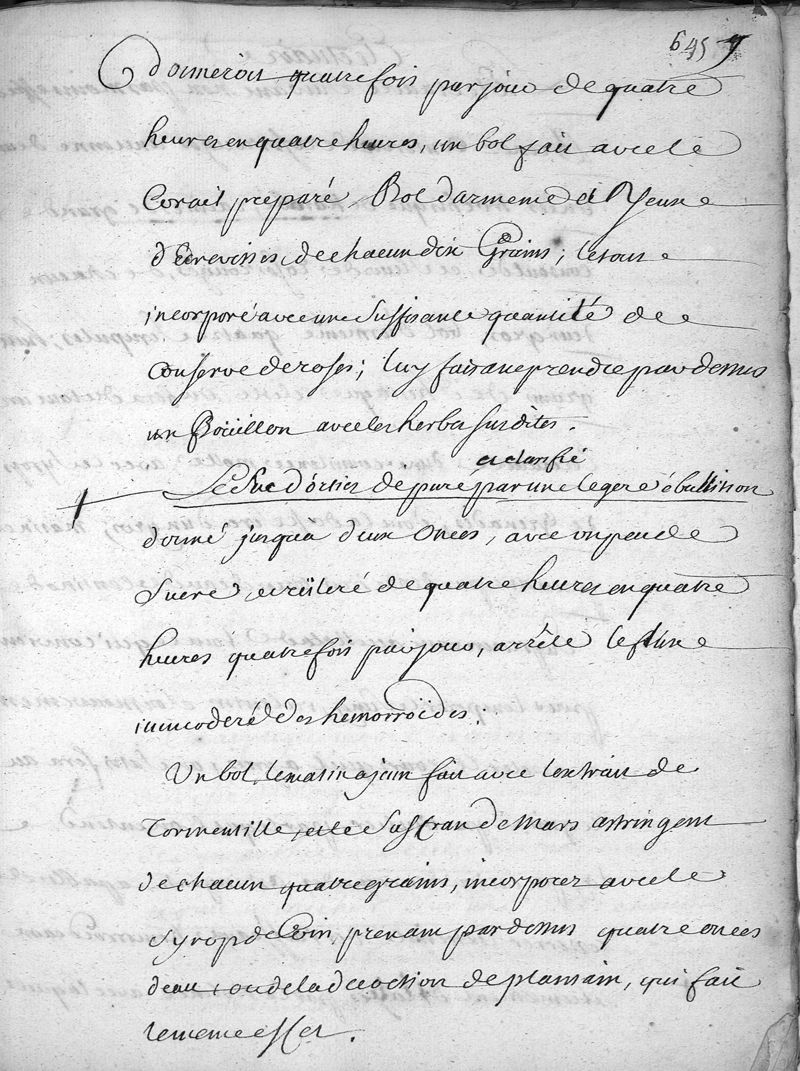 645
donneroit quatre fois par jour de quatre
heures en quatre heures, un bol fait avec le
Corail preparé, Bol darmenie et Yeux
d'Ecrevisses, de chacun dix Grains; le tout
incorporé avec une suffisante quantité de
Conserve de roses; luy faisant prendre par dessus
un Boüillon avec les herbes susdites.
et clarifié
Le Suc d'orties depuré par une legere ébullition
donné jusqu'a deux onces, avec un peu de
Sucre, et reïteré de quatre heures en quatre
heures quatre fois par jour, arrête le flux
immoderé des hemorroïdes.
Un bol, le matin a jeun fait avec l'extrait de
Tormentille, et le Saffran de Mars astringent
de chacun quatre grains, incorporez avec le
Syrop de Coin, prenant par dessus quatre onces
d'eau, ou de la decoction de plantain, qui fait
le meme effet.